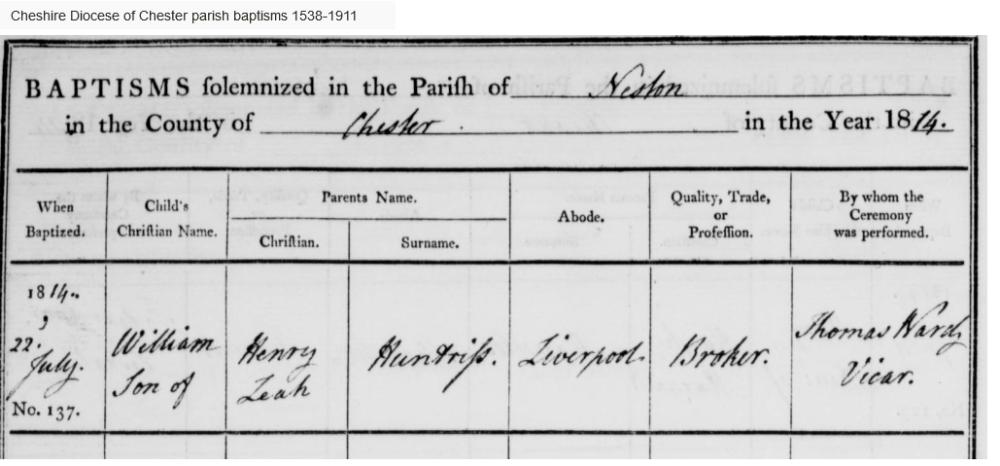 Cheshire Diocese of Chester parish baptisms 1538-1911
BAPTISMS ſolemnized in the Pariſh of Neston
in the County of Chester. in the Year 1814.
When Baptized.
Child's Chriſtian Name.
Parents Name.
Chriſtian.
Surname.
Abode.
Quality, Trade, or Profeſſion.
By whom the Ceremony was performed.
1814.
22.
July.
No. 137.
William
Son of
Henry
Leah
Huntriſs.
Liverpool.
Broker.
Thomas Ward
Vicar.